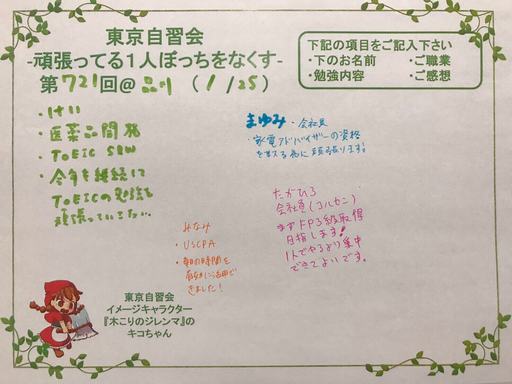 東京自習会
-頑張ってる1人ぼっちをなくす-
第721回@品川 (1/25)
下記の項目をご記入下さい
・下のお名前 ・ご職業
・勉強内容 ・ご感想
・けい
・医薬品開発
・TOEIC S&W
・今年も継続して
TOEICの勉強を
頑張っていきたい
まゆみ・会社員
・家電アドバイザーの資格
を考える為に頑張ります。
みなみ
・USCPA
・朝の時間を
有効に活用で
きました!
たかひろ
会社員(コルセン)
まずFP3級取得
目指します!
1人でやるより集中
できてよいです。
東京自習会
イメージキャラクター
『木こりのジレンマ』の
キコちゃん